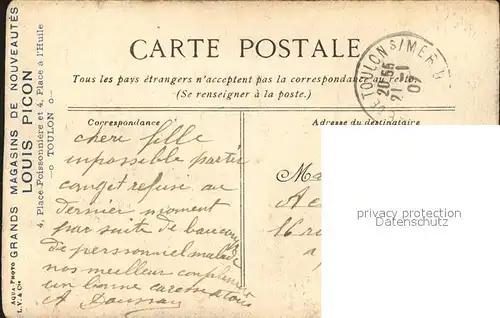 CARTE POSTALE
Tous les pays étrangers n'acceptent pas la correspondance au recto.
(Se renseigner à la poste.)
Correspondance
Adresse du destinataire
chere fille
impossible partir
conget refusé au
dernier moment
par suite de beaucoup
de personnel malade
nos meilleur compliments
un bonne caresse a tous
A
Ma
A
16 r
a
AQUA-PHOTO
L. V. & Cie
GRANDS MAGASINS DE NOUVEAUTÉS
LOUIS PICON
4, Place Poissonnière et 4, Place a l'Huile
—o TOULON o—
TOULON S/MER
20 55
21 -1
07
privates Objekt
Datenschutz